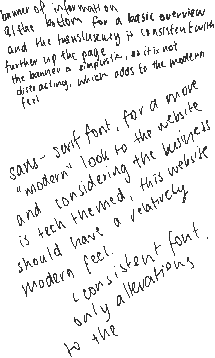 banner of information
at the bottom for a basic overview
and the transluscency is consistent with
further up the page
the banner is simplistic, so it is not
distracting, which adds to the modern
feel
sans-serif font, for a more
"modern" look to the website
and considering the business
is tech themed, this website
should have a relatively
modern feel.
consistent font
only alterations
to the